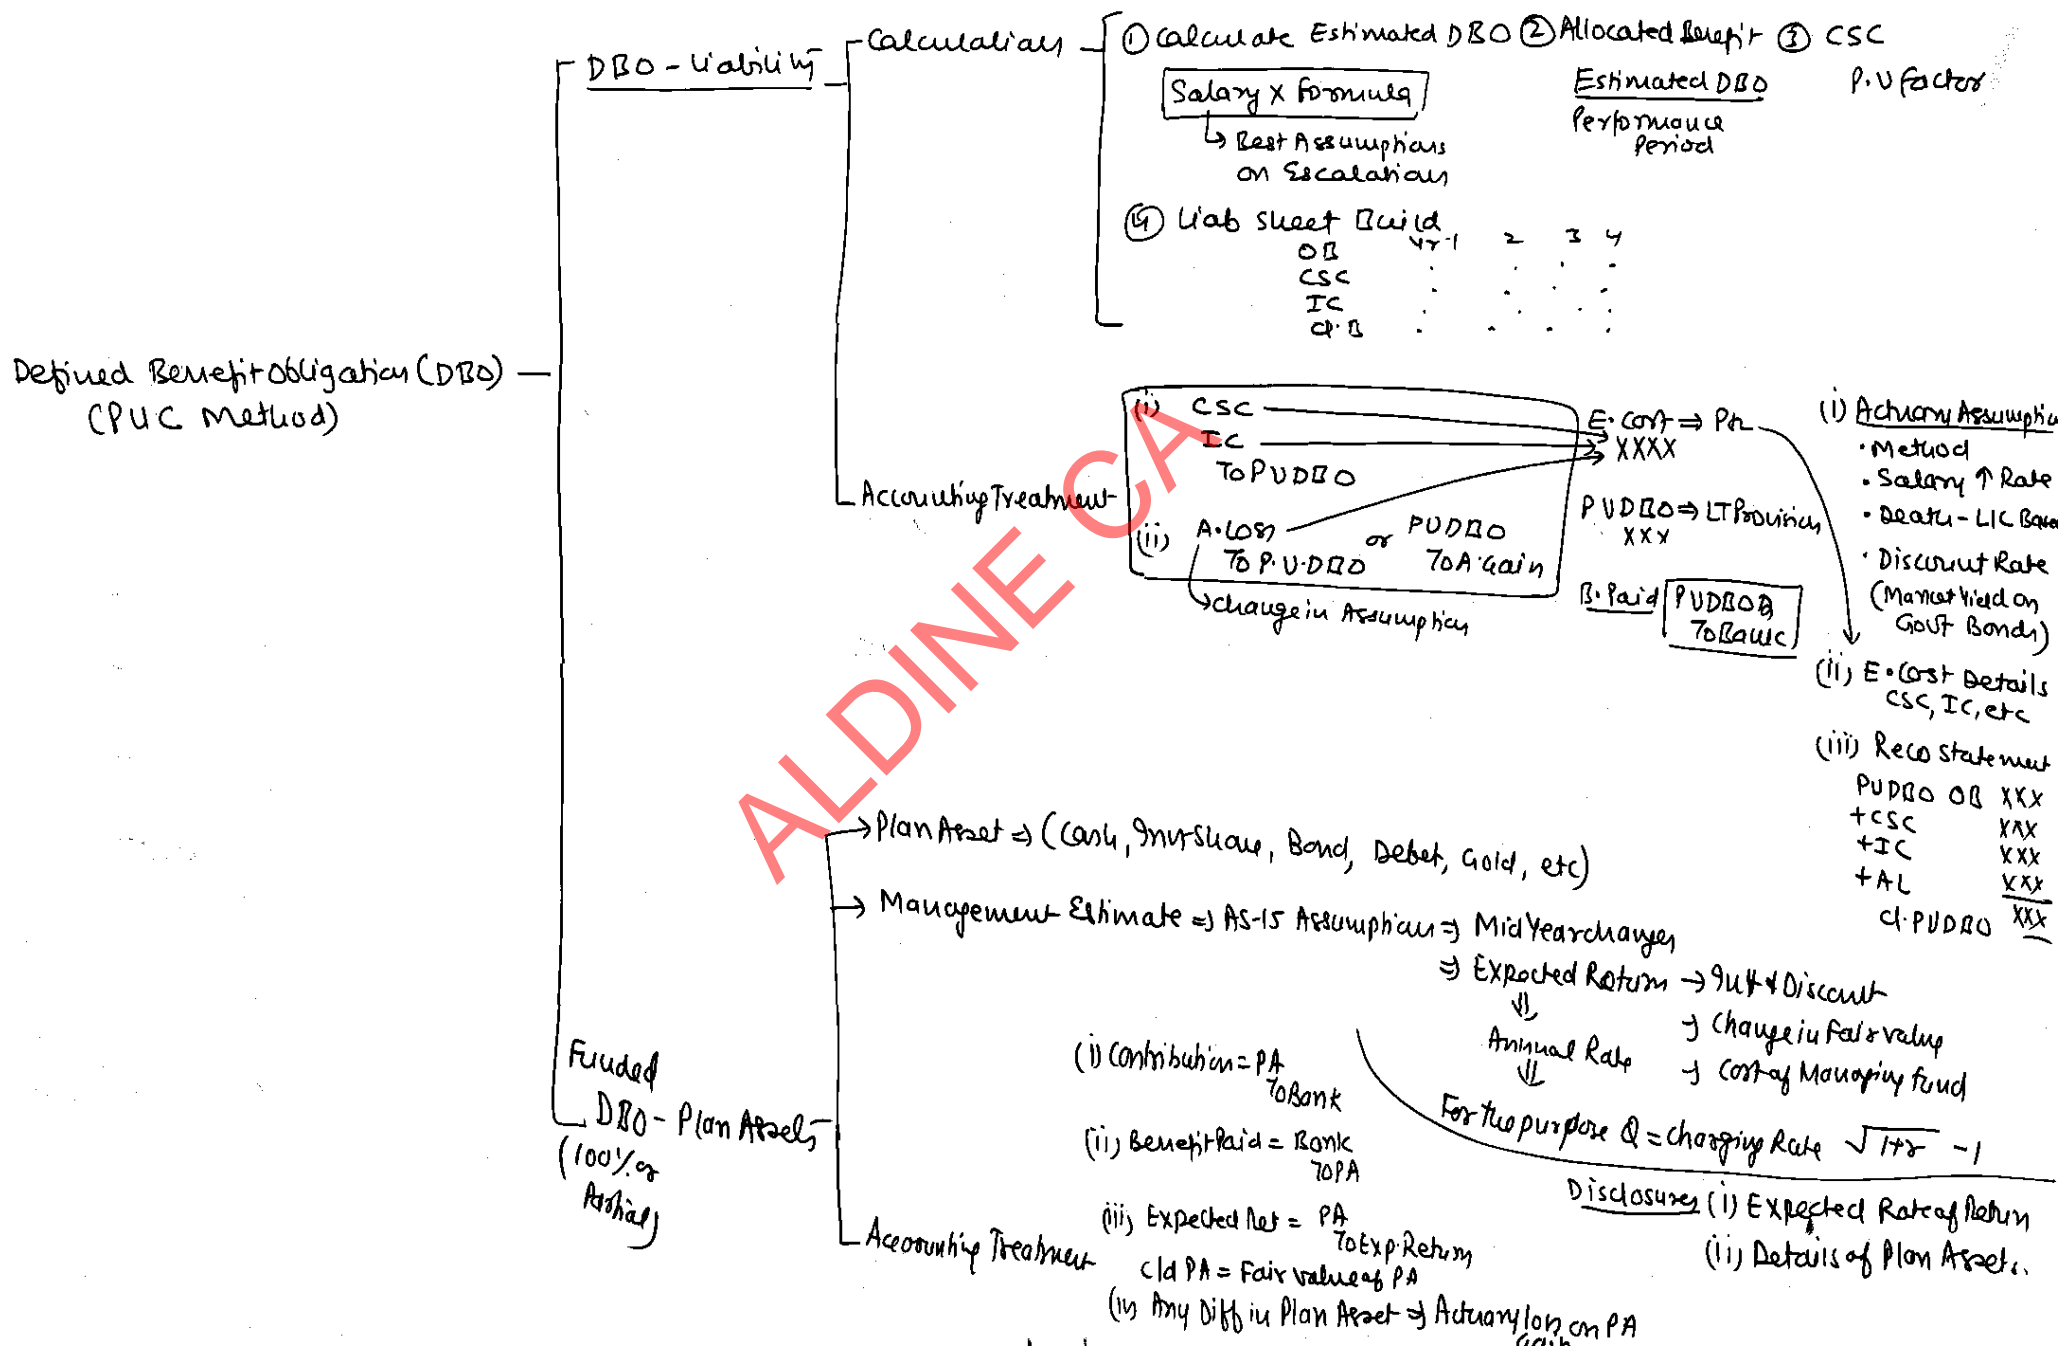 Defined Benefit Obligation (DBO)
(PUC Method)
DBO - Liability
Calculations
① Calculate Estimated DBO ② Allocated Benefit ③ CSC
Salary x Formula
Estimated DBO
P.V factor
Performance
Period
↳ Best Assumptions
on Escalations
④ Liab sheet Build
Yr-1 2 3 4
OB
CSC
IC
Cl.B
Accounting Treatment
(i) CSC
IC
To PVDBO
(ii) A.Loss
To P.V.DBO
or
PVDBO
To A.Gain
↳ change in Assumption
E.cost ⇒ P&L
XXXX
PVDBO ⇒ LT Provision
XXX
B.Paid
PVDBO
To Bank
(i) Actuary Assumption
• Method
• Salary ↑ Rate
• Death - LIC Based
• Discount Rate
(Market Yield on
Govt Bonds)
(ii) E.Cost Details
CSC, IC, etc
(iii) Reco Statement
PVDBO OB XXX
+CSC XXX
+IC XXX
+AL XXX
cl.PVDBO XXX
ALDINE CA
Funded
DBO - Plan Assets
(100% or
Partial)
→ Plan Asset ⇒ (Cash, Inv Share, Bond, Debet, Gold, etc)
→ Management Estimate ⇒ AS-15 Assumptions ⇒ Mid Year changes
⇒ Expected Return → Int & Discount
→ Change in Fair value
→ Cost of Managing fund
⇓
Annual Rate
⇓
For the purpose Q = Charging Rate √1+r - 1
Accounting Treatment
(i) Contribution = PA
To Bank
(ii) Benefit Paid = Bank
To PA
(iii) Expected Ret = PA
To Exp.Return
cld PA = Fair value of PA
(iv) Any Diff in Plan Asset ⇒ Actuary loss on PA
Gain
Disclosures (i) Expected Rate of Return
(ii) Details of Plan Assets.